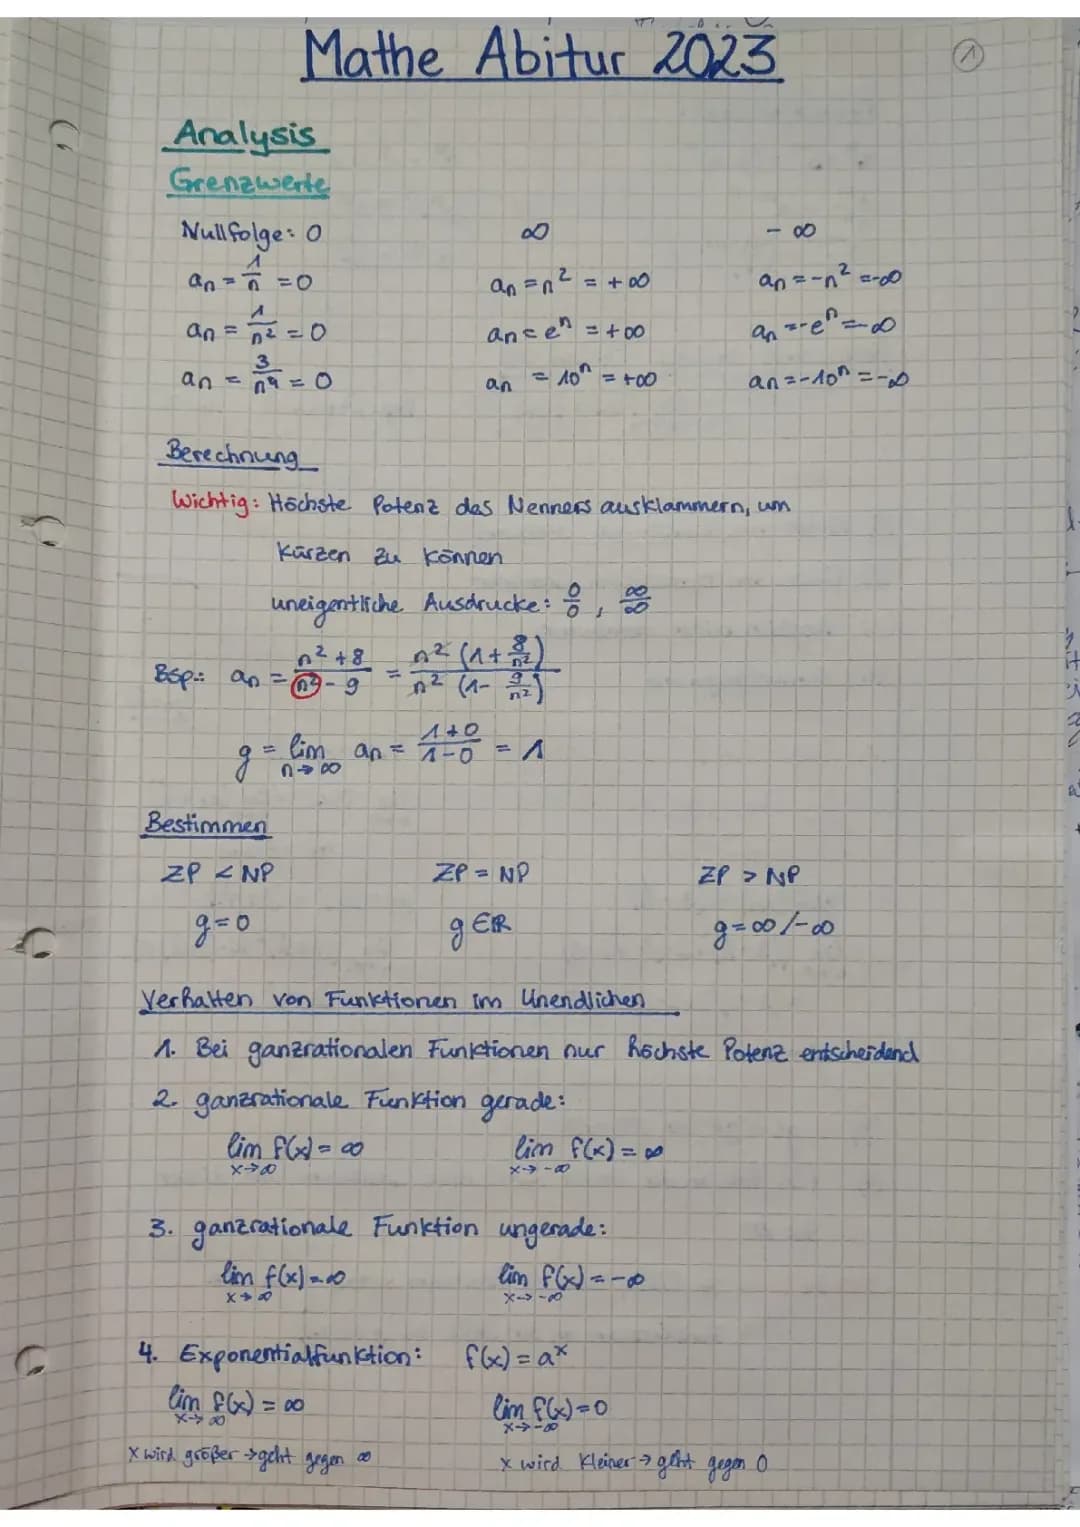 Mathe Abitur 2023
1
Analysis
Grenzwerte
Nullfolge: 0    ∞    - ∞
an = 1/n = 0    an = n² = +∞    an = -n² = -∞
an = 1/n² = 0    an = eⁿ = +∞    an = -eⁿ = -∞
an = 3/n⁴ = 0    an = 10ⁿ = +∞    an = -10ⁿ = -∞
Berechnung
Wichtig: Höchste Potenz des Nenners ausklammern, um
kürzen zu können
uneigentliche Ausdrücke: 0/0, ∞/∞
Bsp.: an = (n² + 8)/(n² - 9) = n² (1 + 8/n²)/n² (1 - 9/n²)
g = lim n→∞ an = (1+0)/(1-0) = 1
Bestimmen
ZP < NP    ZP = NP    ZP > NP
g = 0    g ∈ ℝ    g = ∞/-∞
Verhalten von Funktionen im Unendlichen
1. Bei ganzrationalen Funktionen nur höchste Potenz entscheidend
2. ganzrationale Funktion gerade:
lim x→∞ f(x) = ∞    lim x→-∞ f(x) = ∞
3. ganzrationale Funktion ungerade:
lim x→∞ f(x) = ∞    lim x→-∞ f(x) = -∞
4. Exponentialfunktion: f(x) = aˣ
lim x→∞ f(x) = ∞    lim x→-∞ f(x) = 0
x wird größer → geht gegen ∞    x wird kleiner → geht gegen 0